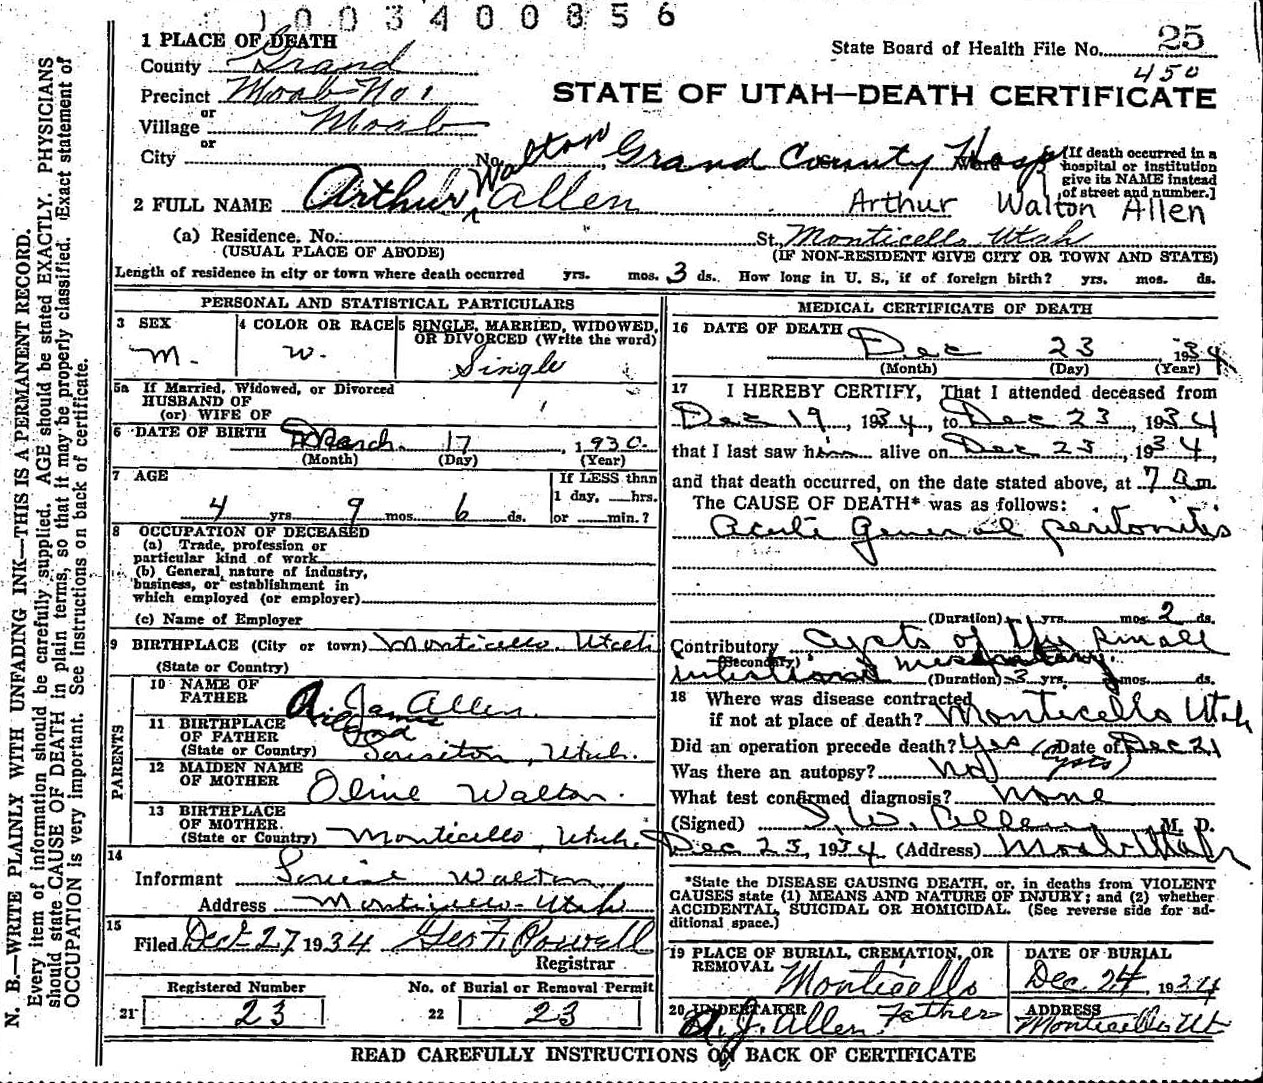 003400856
1 PLACE OF DEATH
State Board of Health File No. 25
County Grand
450
Precinct Moab No 1
STATE OF UTAH—DEATH CERTIFICATE
or
Village Moab
or
City No. Grand County Hosp Ward
[If death occurred in a hospital or institution give its NAME instead of street and number.]
2 FULL NAME Arthur Walton Allen Arthur Walton Allen
(a) Residence, No. St. Monticello Utah
(USUAL PLACE OF ABODE) (IF NON-RESIDENT GIVE CITY OR TOWN AND STATE)
Length of residence in city or town where death occurred yrs. mos. 3 ds. How long in U. S., if of foreign birth? yrs. mos. ds.
PERSONAL AND STATISTICAL PARTICULARS
3 SEX
M.
4 COLOR OR RACE
W.
5 SINGLE, MARRIED, WIDOWED, OR DIVORCED (Write the word)
Single
5a If Married, Widowed, or Divorced
HUSBAND OF
(or) WIFE OF
6 DATE OF BIRTH March 17, 1930
(Month) (Day) (Year)
7 AGE
4 yrs. 9 mos. 6 ds.
If LESS than
1 day, hrs.
or min.?
8 OCCUPATION OF DECEASED
(a) Trade, profession or
particular kind of work
(b) General nature of industry,
business, or establishment in
which employed (or employer)
(c) Name of Employer
9 BIRTHPLACE (City or town) Monticello, Utah
(State or Country)
PARENTS
10 NAME OF
FATHER James Allen
11 BIRTHPLACE
OF FATHER
(State or Country) Utah.
12 MAIDEN NAME
OF MOTHER Olive Walton.
13 BIRTHPLACE
OF MOTHER
(State or Country) Monticello, Utah.
14
Informant Louise Walton
Address Monticello - Utah
15
Filed Dec 27 1934 Geo F. Powell
Registrar
Registered Number No. of Burial or Removal Permit
21 23 22 23
MEDICAL CERTIFICATE OF DEATH
16 DATE OF DEATH
Dec 23, 1934
(Month) (Day) (Year)
17 I HEREBY CERTIFY, That I attended deceased from
Dec 19, 1934, to Dec 23, 1934
that I last saw him alive on Dec 23, 1934,
and that death occurred, on the date stated above, at 7 am.
The CAUSE OF DEATH* was as follows:
Acute general peritonitis
(Duration) yrs. mos. 2 ds.
Contributory Cysts of the small
(Secondary)
intestinal mesentary.
(Duration) 3 yrs. mos. ds.
18 Where was disease contracted
if not at place of death? Monticello Utah
Did an operation precede death? Yes (Cysts) Date of Dec 21
Was there an autopsy? No
What test confirmed diagnosis? None
(Signed) I. W. Allen M. D.
Dec 23, 1934 (Address) Moab Utah
*State the DISEASE CAUSING DEATH, or, in deaths from VIOLENT
CAUSES state (1) MEANS AND NATURE OF INJURY; and (2) whether
ACCIDENTAL, SUICIDAL OR HOMICIDAL. (See reverse side for ad-
ditional space.)
19 PLACE OF BURIAL, CREMATION, OR
REMOVAL Monticello
DATE OF BURIAL
Dec. 24, 1934
20 UNDERTAKER
A. J. Allen Father
ADDRESS
Monticello Ut
READ CAREFULLY INSTRUCTIONS ON BACK OF CERTIFICATE
N. B.—WRITE PLAINLY WITH UNFADING INK—THIS IS A PERMANENT RECORD.
Every item of information should be carefully supplied. AGE should be stated EXACTLY. PHYSICIANS
should state CAUSE OF DEATH in plain terms, so that it may be properly classified. Exact statement of
OCCUPATION is very important. See instructions on back of certificate.